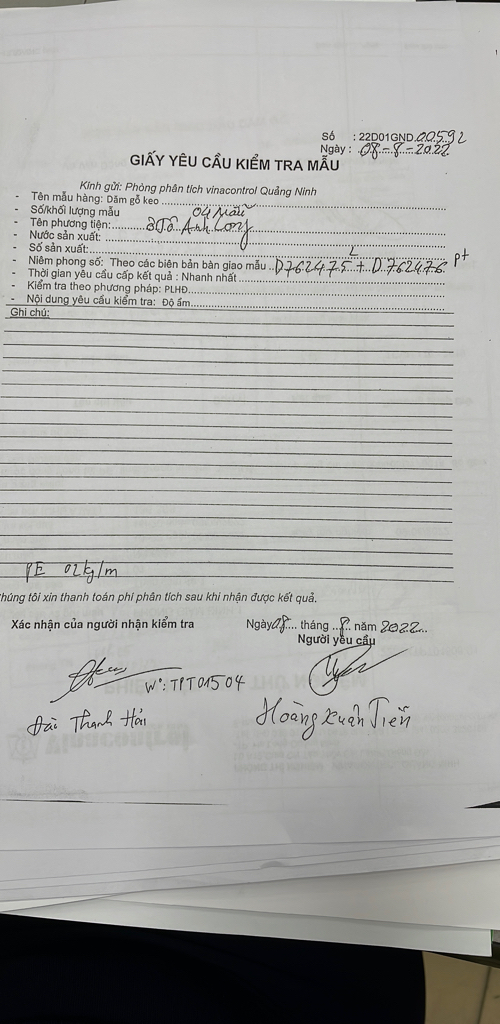 Số : 22D01GND.00592
Ngày : 08-8-2022
GIẤY YÊU CẦU KIỂM TRA MẪU
Kính gửi: Phòng phân tích vinacontrol Quảng Ninh
- Tên mẫu hàng: Dăm gỗ keo
- Số/khối lượng mẫu 04 Mẫu
- Tên phương tiện: Ô Tô Anh Long
- Nước sản xuất:
- Số sản xuất:
- Niêm phong số: Theo các biên bản bàn giao mẫu D762475 + D762476 pt
- Thời gian yêu cầu cấp kết quả : Nhanh nhất
- Kiểm tra theo phương pháp: PLHĐ
- Nội dung yêu cầu kiểm tra: Độ ẩm
Ghi chú:
PE 02kg/m
húng tôi xin thanh toán phí phân tích sau khi nhận được kết quả.
Xác nhận của người nhận kiểm tra
Ngày 08 tháng 8 năm 2022
Người yêu cầu
Nº: TPT01504
Đài Thanh Hải
Hoàng Xuân Tiến